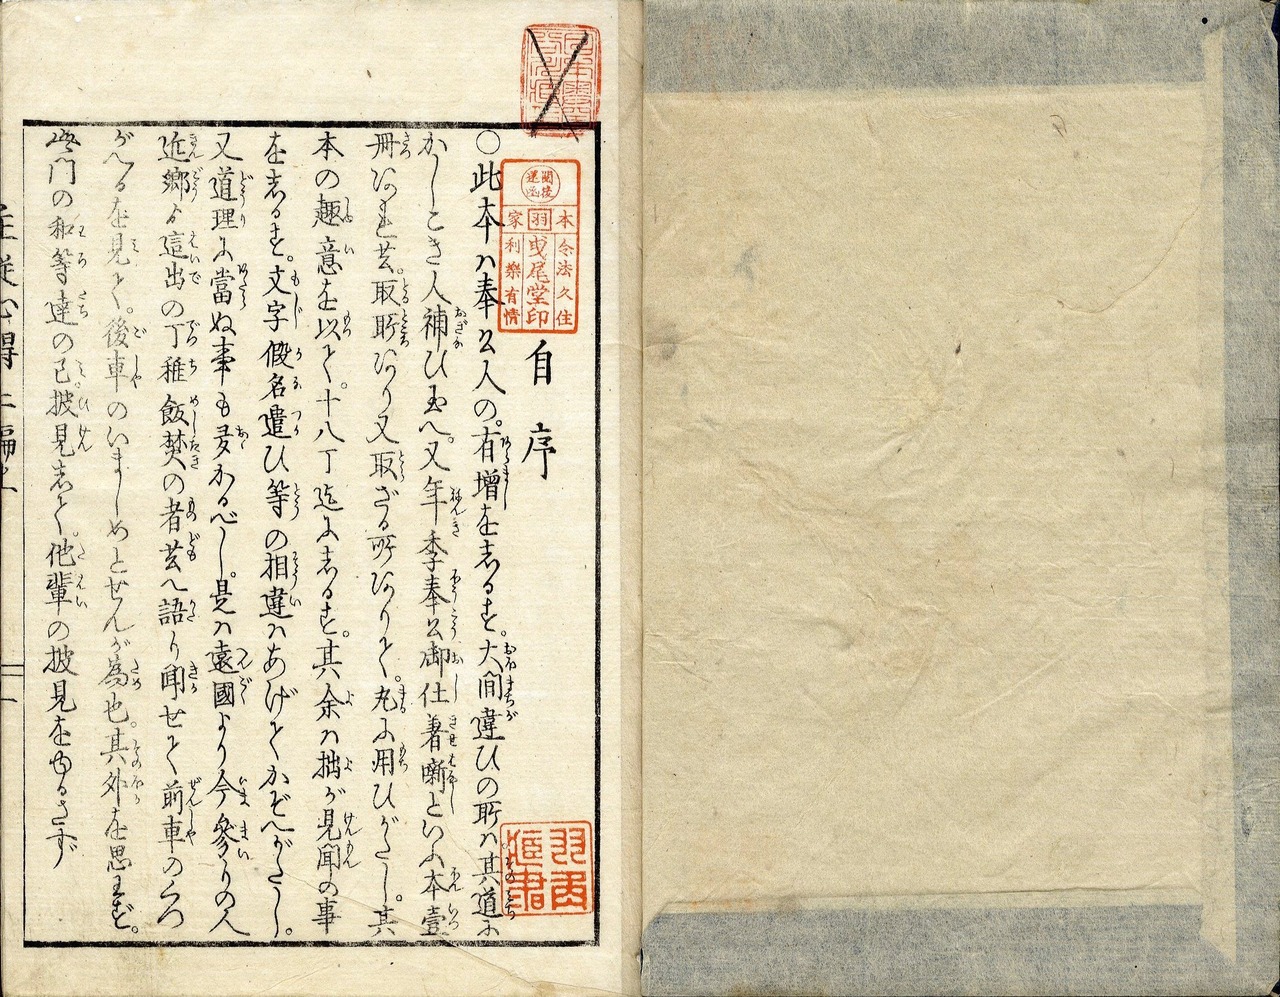 自序
〇此本ハ奉公人の。有増をしるす。大間違ひの所ハ其道に
かしこき人補ひ玉へ。又年季奉公御仕着噺といふ本壹
冊なれ共。取所なり又取ざる所なりとて。丸に用ひがたし。其
本の趣意を以て。十八丁迄にしるす。其余ハ拙が見聞の事
をしるす。文字假名遣ひ等の相違ハあげてかぞへがたし。
又道理に當ぬ事も多かるべし。是ハ遠國より今參りの人
近郷より這出の丁稚飯焚の者共へ語り聞せて前車のくつ
がへるを見て。後車のいましめとせんが為也。其外を思わず。
門の和等達の已披見して。他輩の披見をゆるさず
本
家
羽
令法久住
利樂有情
曳尾堂印